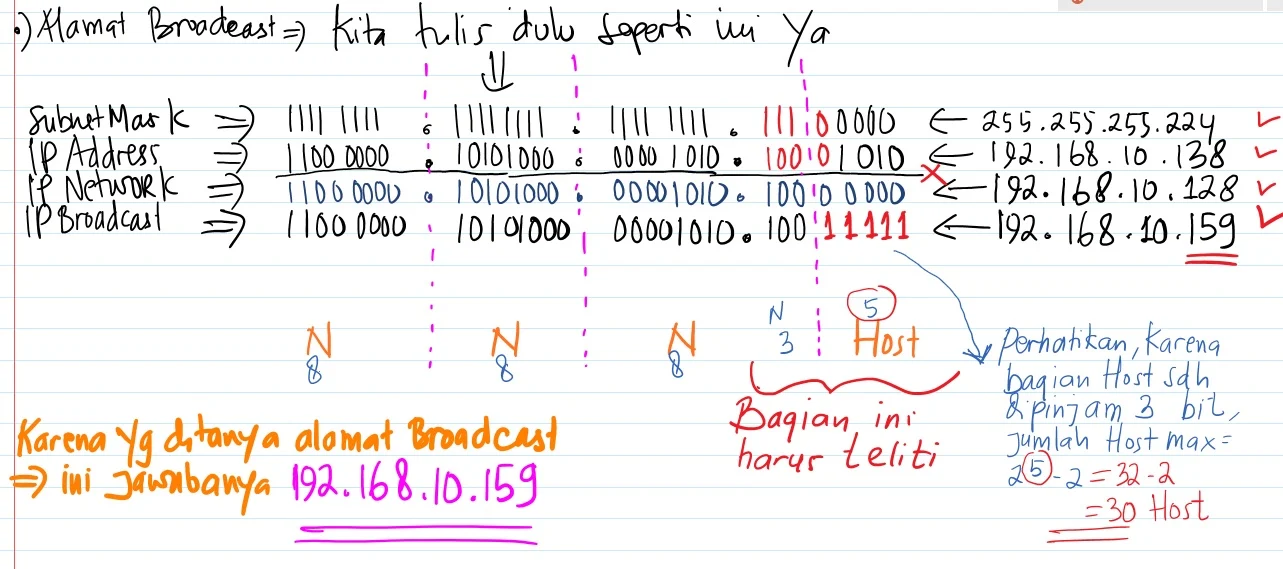 •) Alamat Broadcast => Kita tulis dulu seperti ini Ya
Subnet Mask => 1111 1111 . 11111111 . 1111 1111 . 111 00000 <- 255.255.255.224 ✓
IP Address => 1100 0000 . 10101000 . 0000 1010 . 100 01010 <- 192.168.10.138 ✓
IP Network => 1100 0000 . 10101000 . 00001010 . 100 00000 <- 192.168.10.128 ✓
IP Broadcast => 1100 0000 . 10101000 . 00001010 . 100 11111 <- 192.168.10.159 ✓
N N N N 5
8 8 8 3 Host
Bagian ini
harus teliti
Perhatikan, Karena
bagian Host sdh
dipinjam 3 bit,
jumlah Host max =
2^5 - 2 = 32 - 2
= 30 Host
Karena yg ditanya alamat Broadcast
=> ini jawabanya 192.168.10.159